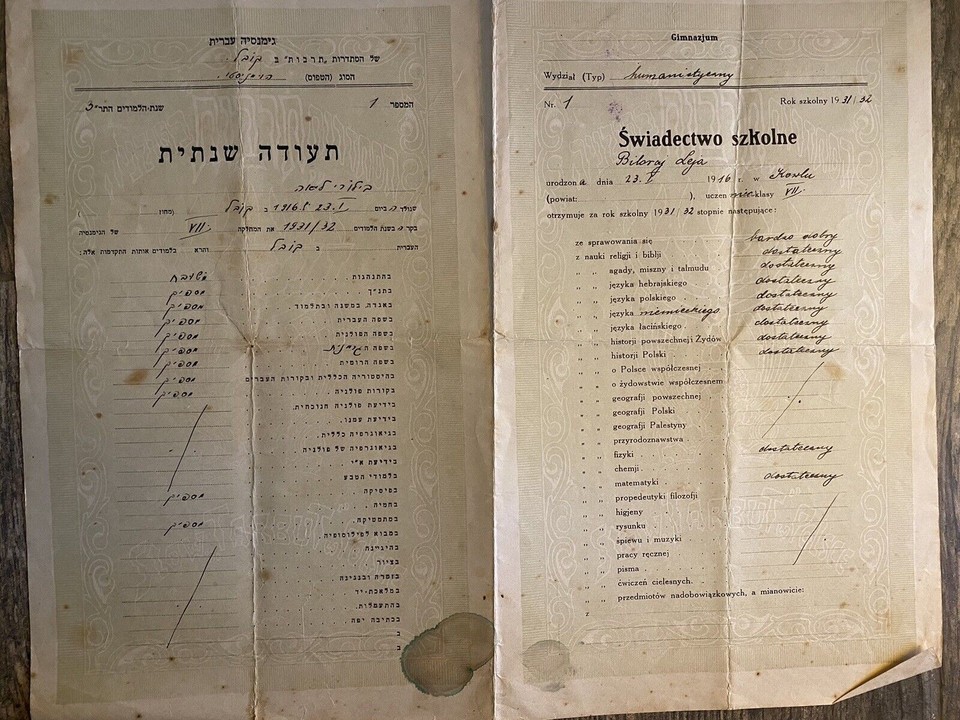 גימנסיה עברית
של הסתדרות „תרבות" ב קובל
הסוג (הטפוס) הומניסטי
המספר 1 שנת-הלמודים התר"צ
תעודה שנתית
בילורי לאה
שנולדה ביום 23.V 1916 ב קובל (מחוז )
בקרה בשנת הלמודים 1931/32 את המחלקה VII של הגימנסיה
העברית ב קובל והרא בלמודים אותות התקדמות אלה:
בהתנהגות משובח
בתנ"ך מספיק
באגדה במשנה ובתלמוד מספיק
בשפה העברית מספיק
בשפה הפולנית מספיק
בשפה הגרמנית מספיק
בשפה הרומית מספיק
בהיסטוריה הכללית ובקורות העברים מספיק
בקורות פולניה מספיק
בידיעת פולניה הנוכחית
בידיעת עמנו
בגיאוגרפיה כללית
בגיאוגרפיה של פולניה
בידיעת א"י
בלמודי הטבע
בפיסיקה מספיק
בחמיה
במתמטיקה מספיק
במבוא לפילוסופיה
בהיגיינה
בציור
בזמרה ובנגינה
במלאכת-יד
בהתעמלות
בכתיבה יפה
ב
ב
Gimnazjum
Wydział (Typ) humanistyczny
Nr. 1 Rok szkolny 1931/32
Świadectwo szkolne
Biloraj Leja
urodzona dnia 23.V 1916 r. w Kowlu
(powiat: ), uczennic klasy VII.
otrzymuje za rok szkolny 1931/32 stopnie następujące:
ze sprawowania się bardzo dobry
z nauki religji i biblji dostateczny
„ „ agady, miszny i talmudu dostateczny
„ „ języka hebrajskiego dostateczny
„ „ języka polskiego dostateczny
„ „ języka niemieckiego dostateczny
„ „ języka łacińskiego dostateczny
„ „ historji powszechnej i Żydów dostateczny
„ „ historji Polski dostateczny
„ „ o Polsce współczesnej
„ „ o żydowstwie współczesnem
„ „ geografji powszechnej
„ „ geografji Polski
„ „ geografji Palestyny
„ „ przyrodoznawstwa
„ „ fizyki dostateczny
„ „ chemji
„ „ matematyki dostateczny
„ „ propedeutyki filozofji
„ „ higjeny
„ „ rysunku
„ „ śpiewu i muzyki
„ „ pracy ręcznej
„ „ pisma
„ „ ćwiczeń cielesnych
„ „ przedmiotów nadobowiązkowych, a mianowicie:
z